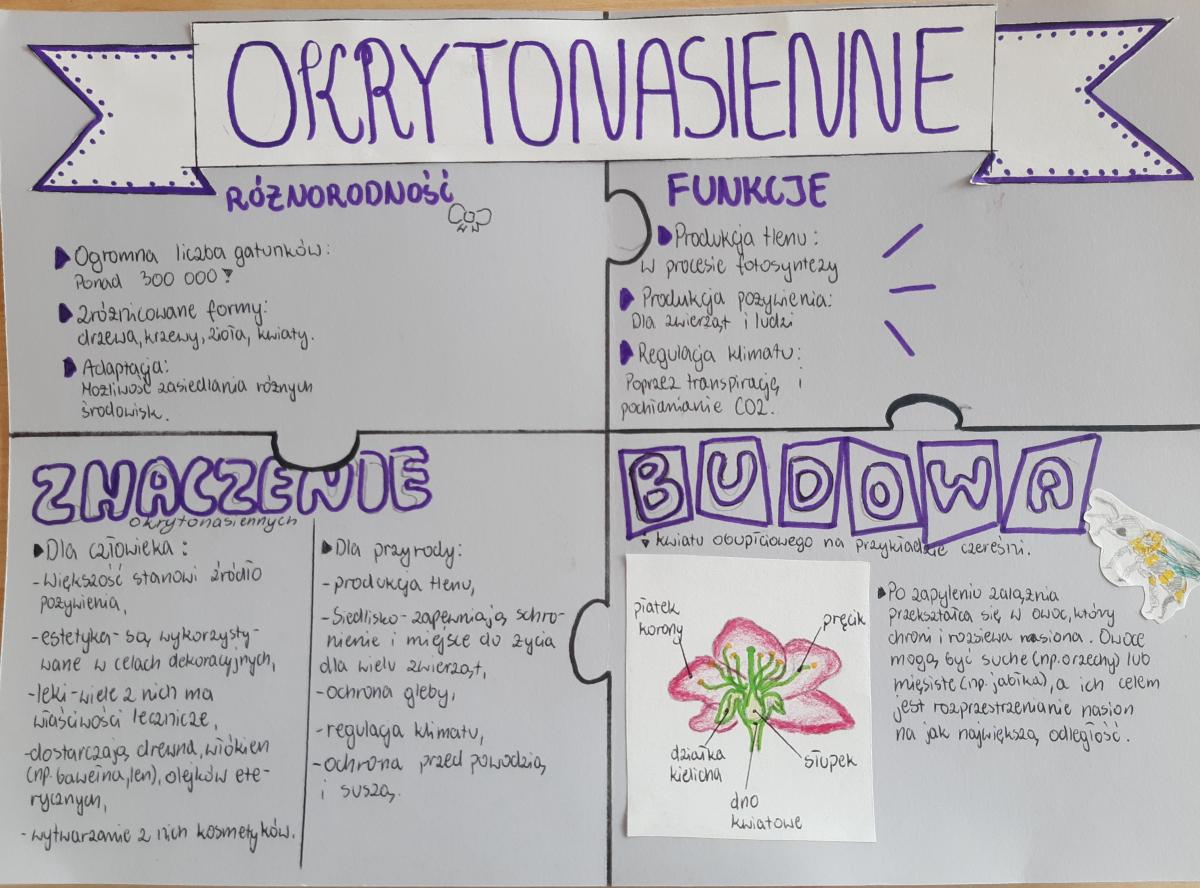 OKRYTONASIENNE
RÓŻNORODNOŚĆ
Ogromna liczba gatunków:
Ponad 300 000!
Zróżnicowane formy:
drzewa, krzewy, zioła, kwiaty.
Adaptacja:
Możliwość zasiedlania różnych
środowisk.
FUNKCJE
Produkcja tlenu:
W procesie fotosyntezy
Produkcja pożywienia:
Dla zwierząt i ludzi
Regulacja klimatu:
Poprzez transpirację i
pochłanianie CO2.
ZNACZENIE
okrytonasiennych
Dla człowieka:
-Większość stanowi źródło
pożywienia,
-estetyka- są wykorzysty-
wane w celach dekoracyjnych,
-leki-wiele z nich ma
właściwości lecznicze,
-dostarczają drewna, włókien
(np. bawełna, len), olejków ete-
rycznych,
-wytwarzanie z nich kosmetyków.
Dla przyrody:
-produkcja tlenu,
-Siedlisko-zapewniają schro-
nienie i miejsce do życia
dla wielu zwierząt,
-ochrona gleby,
-regulacja klimatu,
-ochrona przed powodzią
i suszą.
BUDOWA
kwiatu obupłciowego na przykładzie czereśni.
płatek
korony
pręcik
działka
kielicha
słupek
dno
kwiatowe
Po zapyleniu zalążnia
przekształca się w owoc, który
chroni i rozsiewa nasiona. Owoce
mogą być suche (np. orzechy) lub
mięsiste (np. jabłka), a ich celem
jest rozprzestrzenianie nasion
na jak największą odległość.